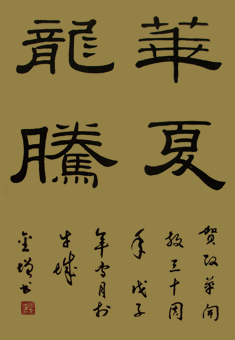 華夏
龍騰
賀改革開
放三十周
年戊子
年雪月於
牛城
金增書